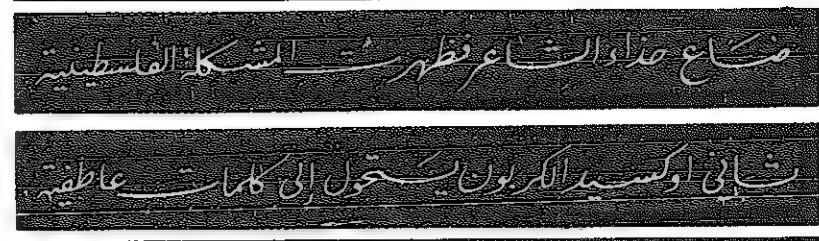 ضاع حذاء الشاعر فظهرت المشكلة الفلسطينية
ثاني اوكسيد الكربون يتحول إلى كلمات عاطفية